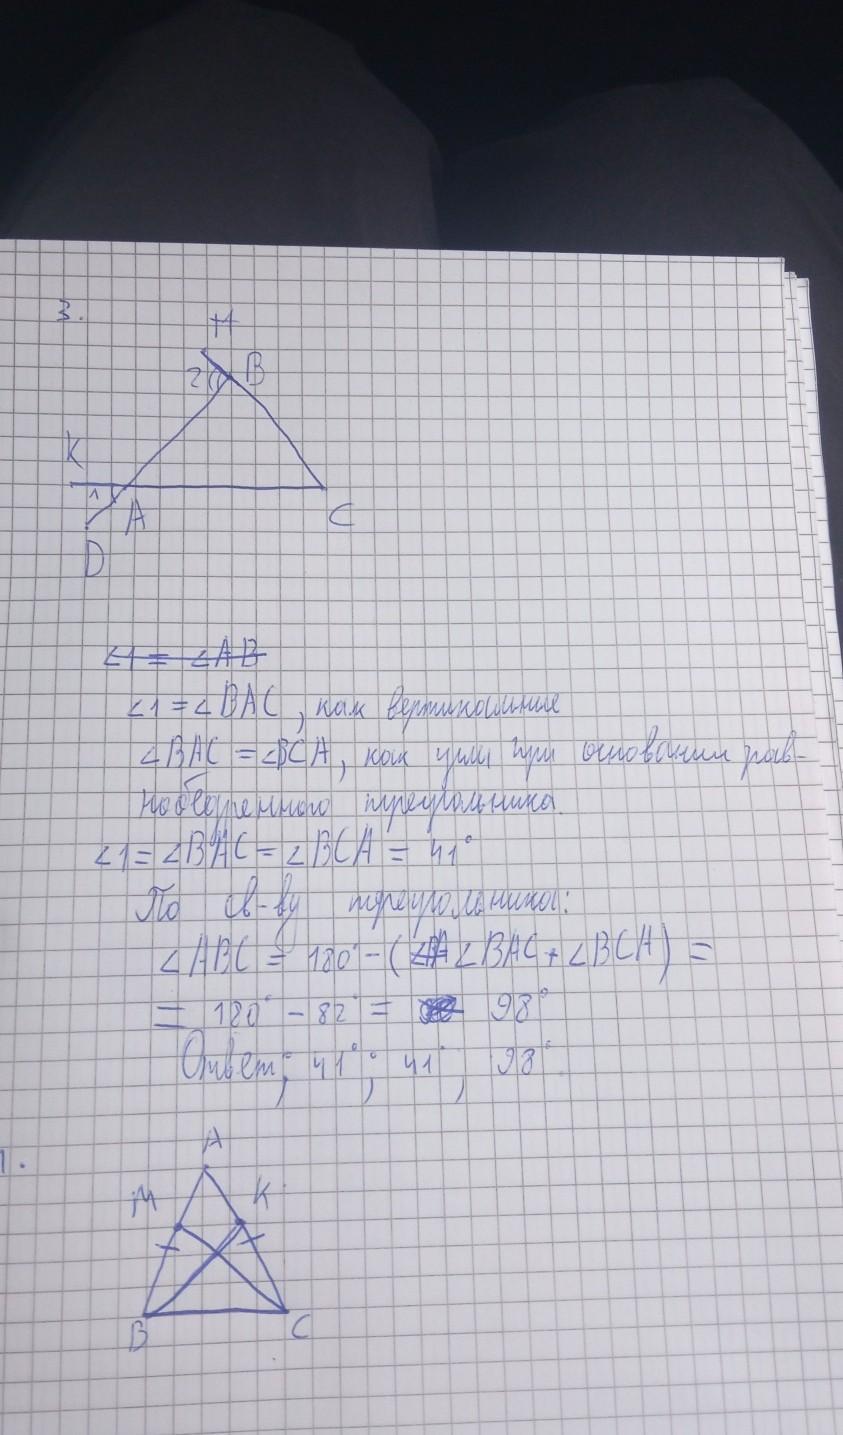 3.
H
2
B
K
1
A
C
D
∠1 = ∠AB
∠1 = ∠BAC, как вертикальные
∠BAC = ∠BCA, как углы при основании рав-
нобедренного треугольника.
∠1 = ∠BAC = ∠BCA = 41°
По св-ву треугольника:
∠ABC = 180° - (∠BAC + ∠BCA) =
= 180° - 82° = 98°
Ответ; 41°; 41°; 98°.
1.
A
M
K
B
C